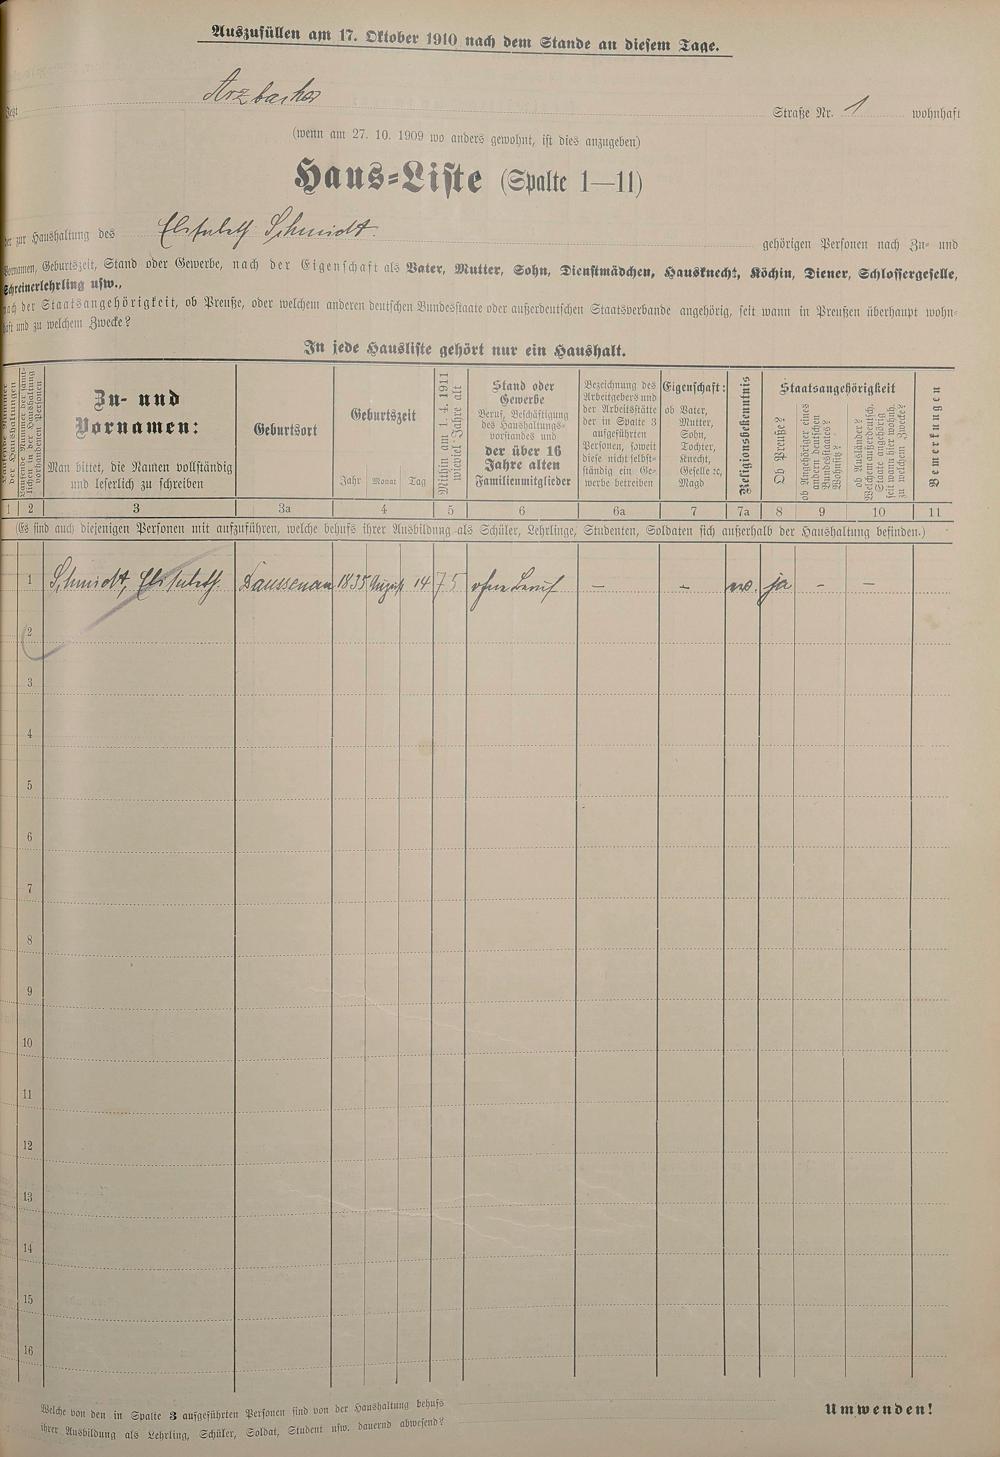 Auszufüllen am 17. Oktober 1910 nach dem Stande an diesem Tage.
Arzbacher
Straße Nr. 1 wohnhaft
(wenn am 27. 10. 1909 wo anders gewohnt, ist dies anzugeben)
Haus-Liste (Spalte 1—11)
der zur Haushaltung des Elisabeth Schmidt. gehörigen Personen nach Zu- und
Vornamen, Geburtszeit, Stand oder Gewerbe, nach der Eigenschaft als Vater, Mutter, Sohn, Dienstmädchen, Hausknecht, Köchin, Diener, Schlossergeselle,
Schreinerlehrling usw.,
nach der Staatsangehörigkeit, ob Preuße, oder welchem anderen deutschen Bundesstaate oder außerdeutschen Staatsverbande angehörig, seit wann in Preußen überhaupt wohn-
haft und zu welchem Zwecke?
In jede Hausliste gehört nur ein Haushalt.
der Haushaltungen
Laufende Nummer der sämt-
lichen in der Haushaltung
vorhandenen Personen
Zu- und
Vornamen:
Man bittet, die Namen vollständig
und leserlich zu schreiben
Geburtsort
Geburtszeit
Jahr Monat Tag
Mithin am 1. 4. 1911
wieviel Jahre alt
Stand oder
Gewerbe
Beruf, Beschäftigung
des Haushaltungs-
vorstandes und
der über 16
Jahre alten
Familienmitglieder
Bezeichnung des
Arbeitgebers und
der Arbeitsstätte
der in Spalte 3
aufgeführten
Personen, soweit
diese nicht selbst-
ständig ein Ge-
werbe betreiben
Eigenschaft:
ob Vater,
Mutter,
Sohn,
Tochter,
Knecht,
Geselle ec,
Magd
Religionsbekenntnis
Staatsangehörigkeit
Ob Preuße?
ob Angehöriger eines
andern deutschen
Bundesstaates?
Wohnsitz?
ob Ausländer?
Welchem außerdeutsch.
Staate angehörig,
seit wann hier wohnh.
zu welchem Zwecke?
Bemerkungen
1 2 3 3a 4 5 6 6a 7 7a 8 9 10 11
(Es sind auch diejenigen Personen mit aufzuführen, welche behufs ihrer Ausbildung als Schüler, Lehrlinge, Studenten, Soldaten sich außerhalb der Haushaltung befinden.)
1 Schmidt, Elisabeth. Daussenau 1835 August 14 75 ohne Beruf — — ev. ja — —
2
3
4
5
6
7
8
9
10
11
12
13
14
15
16
Welche von den in Spalte 3 aufgeführten Personen sind von der Haushaltung behufs
ihrer Ausbildung als Lehrling, Schüler, Soldat, Student usw. dauernd abwesend?
Umwenden!